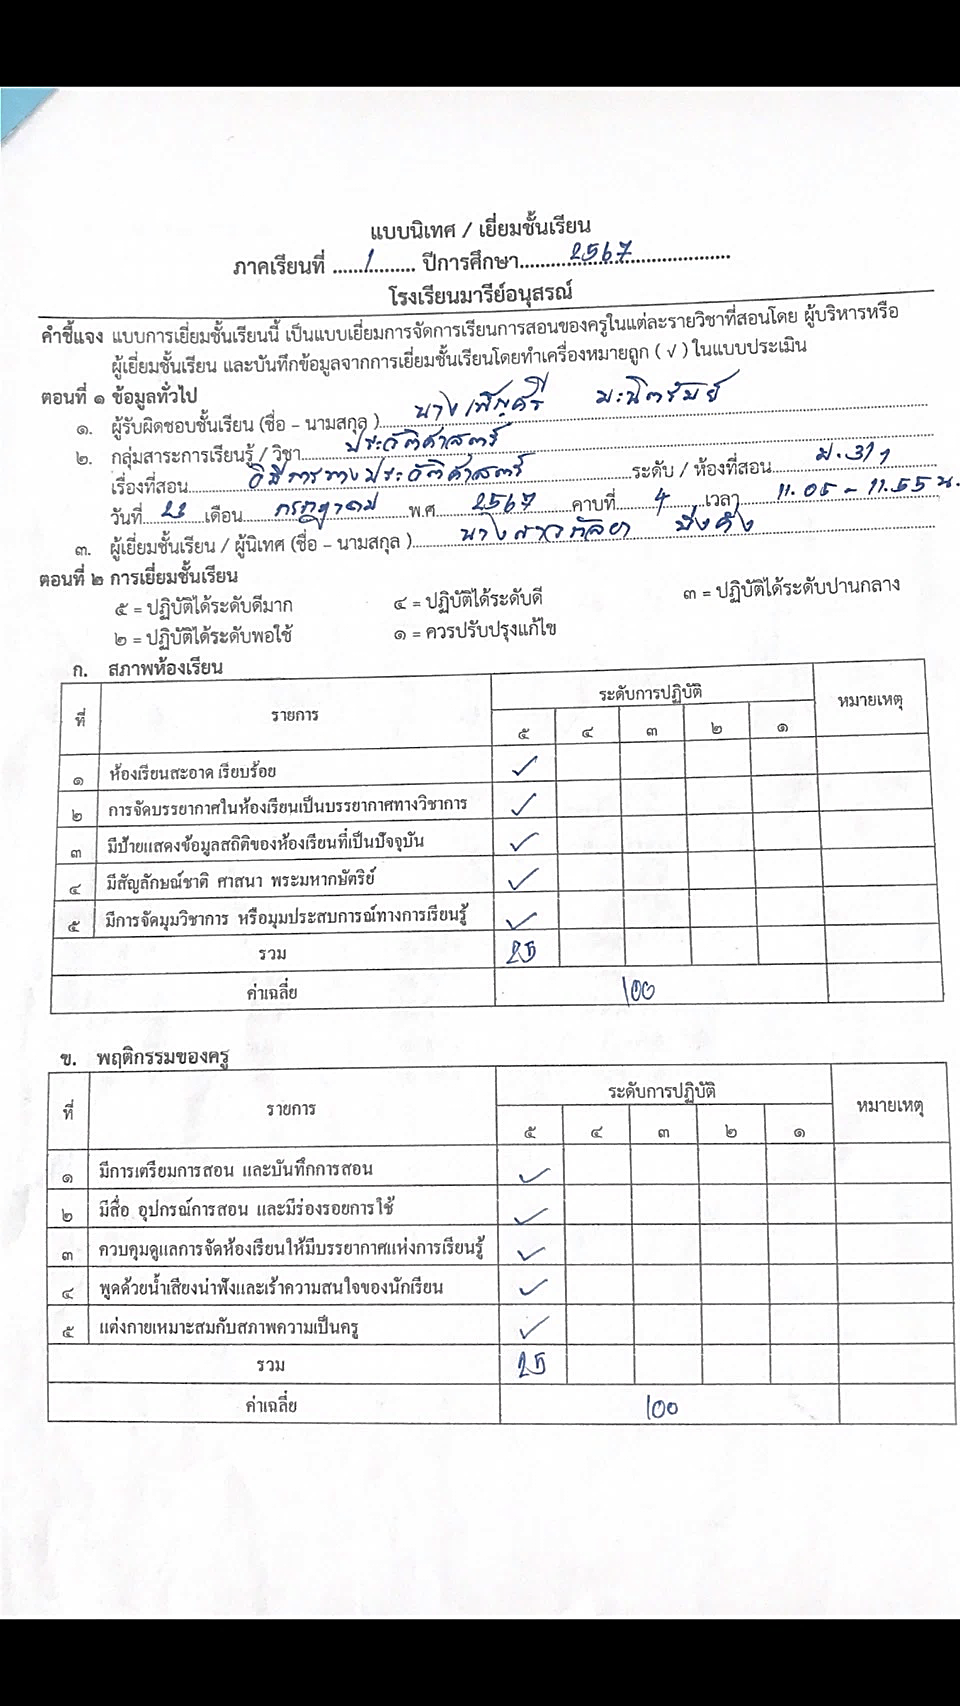 แบบนิเทศ / เยี่ยมชั้นเรียน
ภาคเรียนที่ ......1......... ปีการศึกษา.........2567...................
โรงเรียนมารีย์อนุสรณ์
คำชี้แจง แบบการเยี่ยมชั้นเรียนนี้ เป็นแบบเยี่ยมการจัดการเรียนการสอนของครูในแต่ละรายวิชาที่สอนโดย ผู้บริหารหรือ
ผู้เยี่ยมชั้นเรียน และบันทึกข้อมูลจากการเยี่ยมชั้นเรียนโดยทำเครื่องหมายถูก ( √ ) ในแบบประเมิน
ตอนที่ ๑ ข้อมูลทั่วไป
๑. ผู้รับผิดชอบชั้นเรียน (ชื่อ – นามสกุล ) นางเพ็ญศรี
๒. กลุ่มสาระการเรียนรู้ / วิชา ประวัติศาสตร์
เรื่องที่สอน วิธีการทางประวัติศาสตร์ ระดับ / ห้องที่สอน ม.3/1
วันที่ 23 เดือน กรกฎาคม พ.ศ. 2567 คาบที่ 4 เวลา 11.05 - 11.55 น.
๓. ผู้เยี่ยมชั้นเรียน / ผู้นิเทศ (ชื่อ – นามสกุล ) นางสาวกัลยา
ตอนที่ ๒ การเยี่ยมชั้นเรียน
๕ = ปฏิบัติได้ระดับดีมาก ๔ = ปฏิบัติได้ระดับดี ๓ = ปฏิบัติได้ระดับปานกลาง
๒ = ปฏิบัติได้ระดับพอใช้ ๑ = ควรปรับปรุงแก้ไข
ก. สภาพห้องเรียน
ที่ รายการ ระดับการปฏิบัติ หมายเหตุ
๕ ๔ ๓ ๒ ๑
๑ ห้องเรียนสะอาด เรียบร้อย ✓
๒ การจัดบรรยากาศในห้องเรียนเป็นบรรยากาศทางวิชาการ ✓
๓ มีป้ายแสดงข้อมูลสถิติของห้องเรียนที่เป็นปัจจุบัน ✓
๔ มีสัญลักษณ์ชาติ ศาสนา พระมหากษัตริย์ ✓
๕ มีการจัดมุมวิชาการ หรือมุมประสบการณ์ทางการเรียนรู้ ✓
รวม 25
ค่าเฉลี่ย 100
ข. พฤติกรรมของครู
ที่ รายการ ระดับการปฏิบัติ หมายเหตุ
๕ ๔ ๓ ๒ ๑
๑ มีการเตรียมการสอน และบันทึกการสอน ✓
๒ มีสื่อ อุปกรณ์การสอน และมีร่องรอยการใช้ ✓
๓ ควบคุมดูแลการจัดห้องเรียนให้มีบรรยากาศแห่งการเรียนรู้ ✓
๔ พูดด้วยน้ำเสียงน่าฟังและเร้าความสนใจของนักเรียน ✓
๕ แต่งกายเหมาะสมกับสภาพความเป็นครู ✓
รวม 25
ค่าเฉลี่ย 100